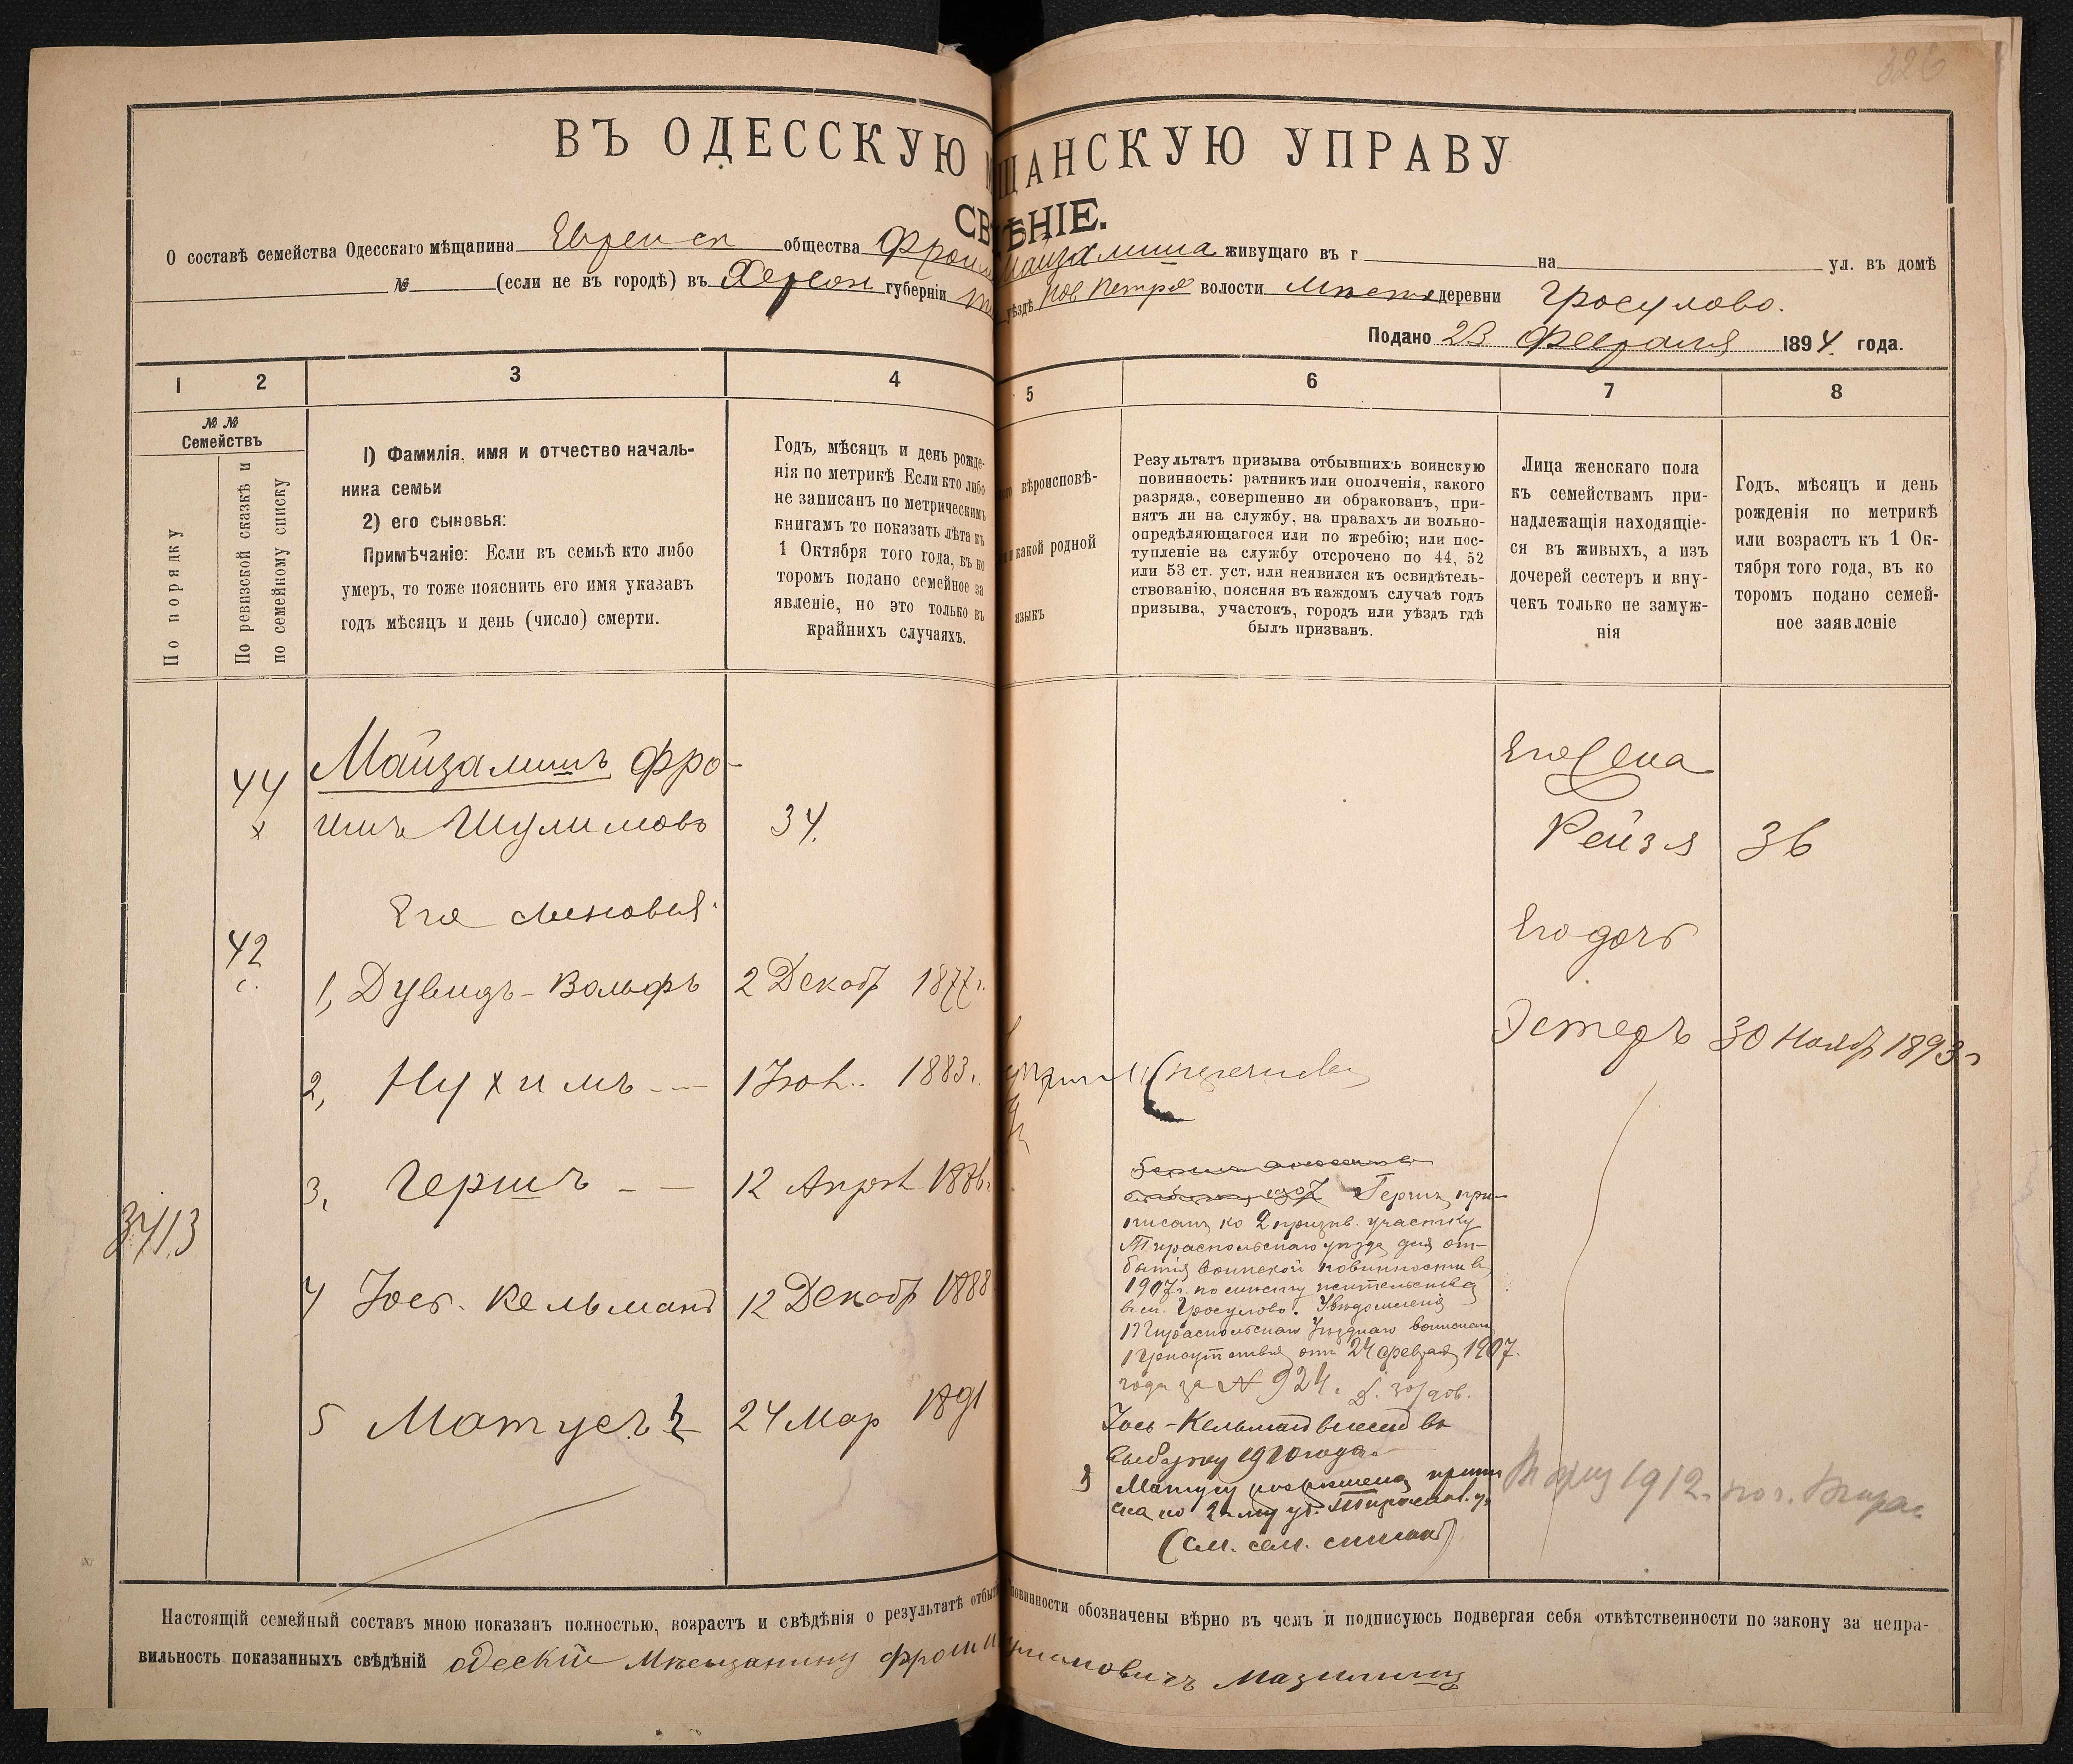 326
ВЪ ОДЕССКУЮ ЩАНСКУЮ УПРАВУ
СВѢНІЕ.
О составѣ семейства Одесскаго мѣщанина Еврейск общества Фроим Майзалиша живущаго въ г на ул. въ домѣ
№ (если не въ городѣ) въ Херсон губерніи уѣздѣ Нов Петров волости деревни Гросулово.
Подано 23 Февраля 1894 года.
1 2 3 4 5 6 7 8
№ №
Семействъ
По порядку
По ревизской сказкѣ и
по семейному списку
1) Фамилія, имя и отчество началь-
ника семьи
2) его сыновья:
Примѣчаніе: Если въ семьѣ кто либо
умеръ, то тоже пояснить его имя указавъ
годъ мѣсяцъ и день (число) смерти.
Годъ, мѣсяцъ и день рожде-
нія по метрикѣ Если кто либо
не записанъ по метрическимъ
книгамъ то показать лѣта къ
1 Октября того года, въ ко
торомъ подано семейное за
явленіе, но это только въ
крайнихъ случаяхъ.
вѣроисповѣ-
какой родной
языкъ
Результатъ призыва отбывшихъ воинскую
повинность: ратникъ или ополченія, какого
разряда, совершенно ли обракованъ, при-
нятъ ли на службу, на правахъ ли вольно-
опредѣляющагося или по жребію; или пос-
тупленіе на службу отсрочено по 44, 52
или 53 ст. уст. или неявился къ освидѣтель-
ствованію, поясняя въ каждомъ случаѣ годъ
призыва, участокъ, городъ или уѣздъ гдѣ
былъ призванъ.
Лица женскаго пола
къ семействамъ при-
надлежащія находящіе-
ся въ живыхъ, а изъ
дочерей сестеръ и вну-
чекъ только не замуж-
нія
Годъ, мѣсяцъ и день
рожденія по метрикѣ
или возрастъ къ 1 Ок-
тября того года, въ ко
торомъ подано семей-
ное заявленіе
44 Майзалишъ Фро-
х имъ Шулимовъ 34.
Его жена
Рейзя 36
Его сыновья:
42
1, Дувидъ-Вольфъ 2 Декабр 1877 г.
Его дочь
Эстеръ 30 Ноябр 1893 г
2, Нухимъ 1 Іюл. 1883 г.
3, Гершъ 12 Апрѣл 1886 г.
3413
4 Іось. Кельманъ 12 Декабр 1888
5 Матусъ 24 Мар 1891
1907 Гершъ при-
писанъ ко 2 призыв. участку
Тираспольскаго уѣзда для от-
бытія воинской повинности въ
1907 г. по мѣсту жительства
въ м. Гросулово. Увѣдомленіе
Тираспольскаго Уѣзднаго воинскаго
Присутствія отъ 24 февраля 1907.
года за № 924.
Іось-Кельманъ внесенъ въ
выборку 1910 года.
Матусу разрѣшена припи
ска ко 2-му уч. Тираспол. у.
(см. сем. списокъ)
1912
Настоящій семейный составъ мною показанъ полностью, возрастъ и свѣдѣнія о результатѣ отбы повинности обозначены вѣрно въ чемъ и подписуюсь подвергая себя отвѣтственности по закону за непра-
вильность показанныхъ свѣдѣній одескій Мѣщанинъ Фроим Мазилишъ